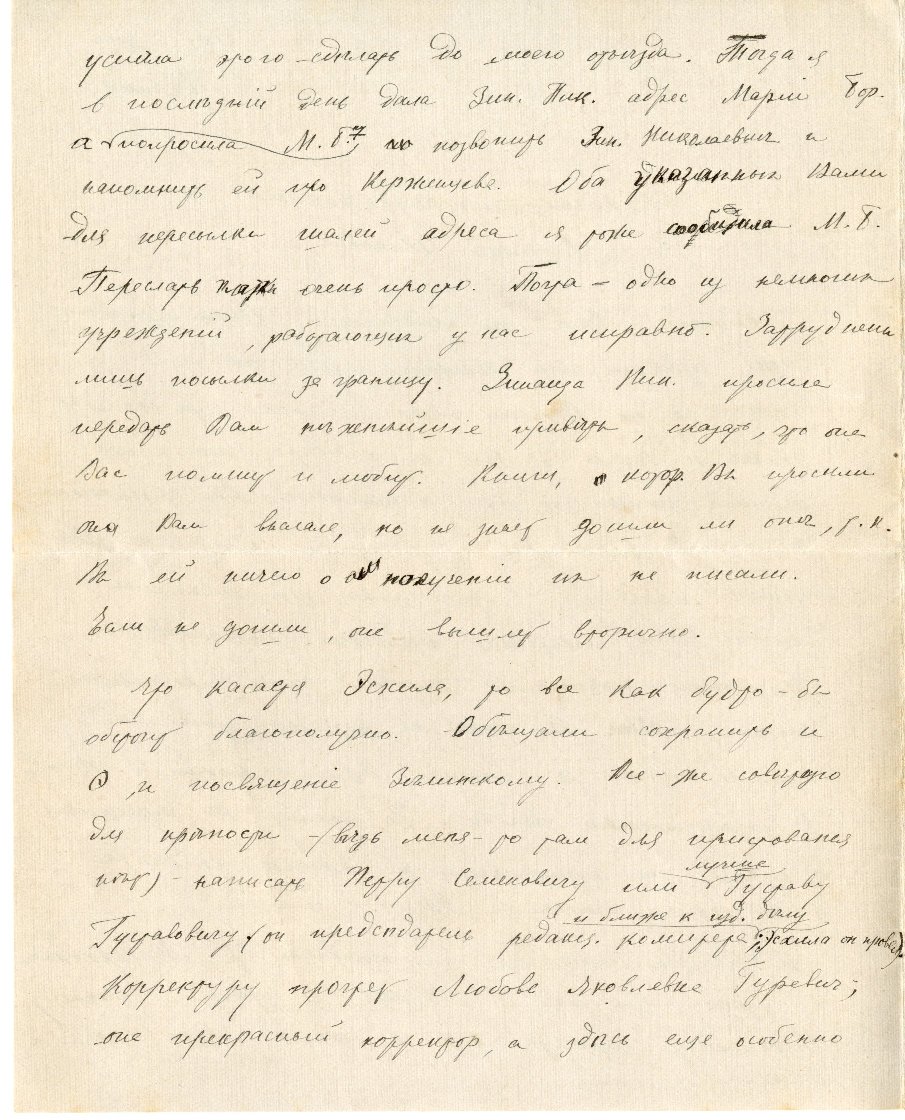 успѣла этого сдѣлать до моего отъѣзда. Тогда я
в послѣдній день дала Зин. Ник. адрес Маріи Бор.
а попросила М. Б. позвонить Зин. Николаевнѣ и
напомнить ей про Керженцева. Оба указанных Вами
для пересылки шалей адреса я тоже сообщила М. Б.
Переслать очень просто. Почта – одно из немногих
учрежденій, работающих у нас исправно. Затруднены
лишь посылки за границу. Зинаида Ник. просила
передать Вам нѣжнѣйшіе привѣты, сказать, что она
Вас помнит и любит. Книги, о котор. Вы просили
она Вам выслала, но не знает дошли ли онѣ, т. к.
Вы ей ничего о полученіи их не писали.
Если не дошли, она вышлет вторично.
Что касается Эсхила, то все как будто-бы
обстоит благополучно. Обѣщали сохранить и
Θ, и посвященіе Зѣлинскому. Все-же совѣтую
для прочности – (вѣдь меня-то там для пристованія
нѣт) – написать Петру Семеновичу или лучше Густаву
Густавовичу (он предсѣдатель редакц. комитета и ближе к изд. дѣлу; Эсхила он провел).
Корректуру прочтет Любовь Яковлевна Гуревич;
она прекрасный корректор, а здѣсь еще особенно